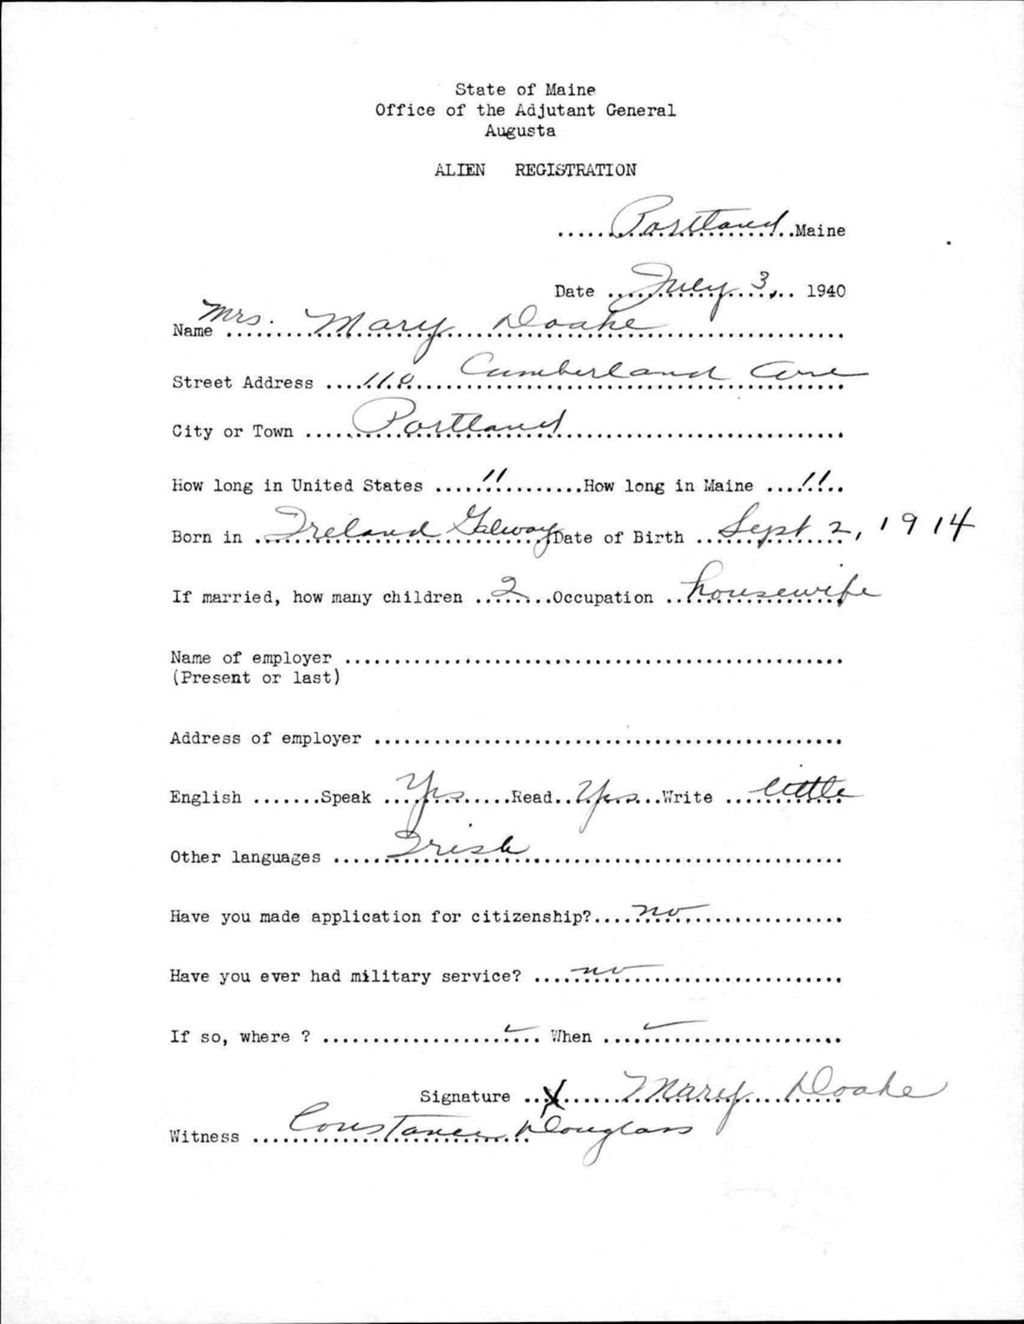 State of Maine
Office of the Adjutant General
Augusta
ALIEN REGISTRATION
Portland Maine
Date July 3, 1940
Name Mrs. Mary Doake
Street Address 110 Cumberland Ave
City or Town Portland
How long in United States 11 How long in Maine 11
Born in Ireland Galway Date of Birth Sept 2, 1914
If married, how many children 2 Occupation housewife
Name of employer
(Present or last)
Address of employer
English Speak Yes Read Yes Write little
Other languages Irish
Have you made application for citizenship? no
Have you ever had military service? no
If so, where ? When
Signature X Mary Doake
Witness Constance Douglass